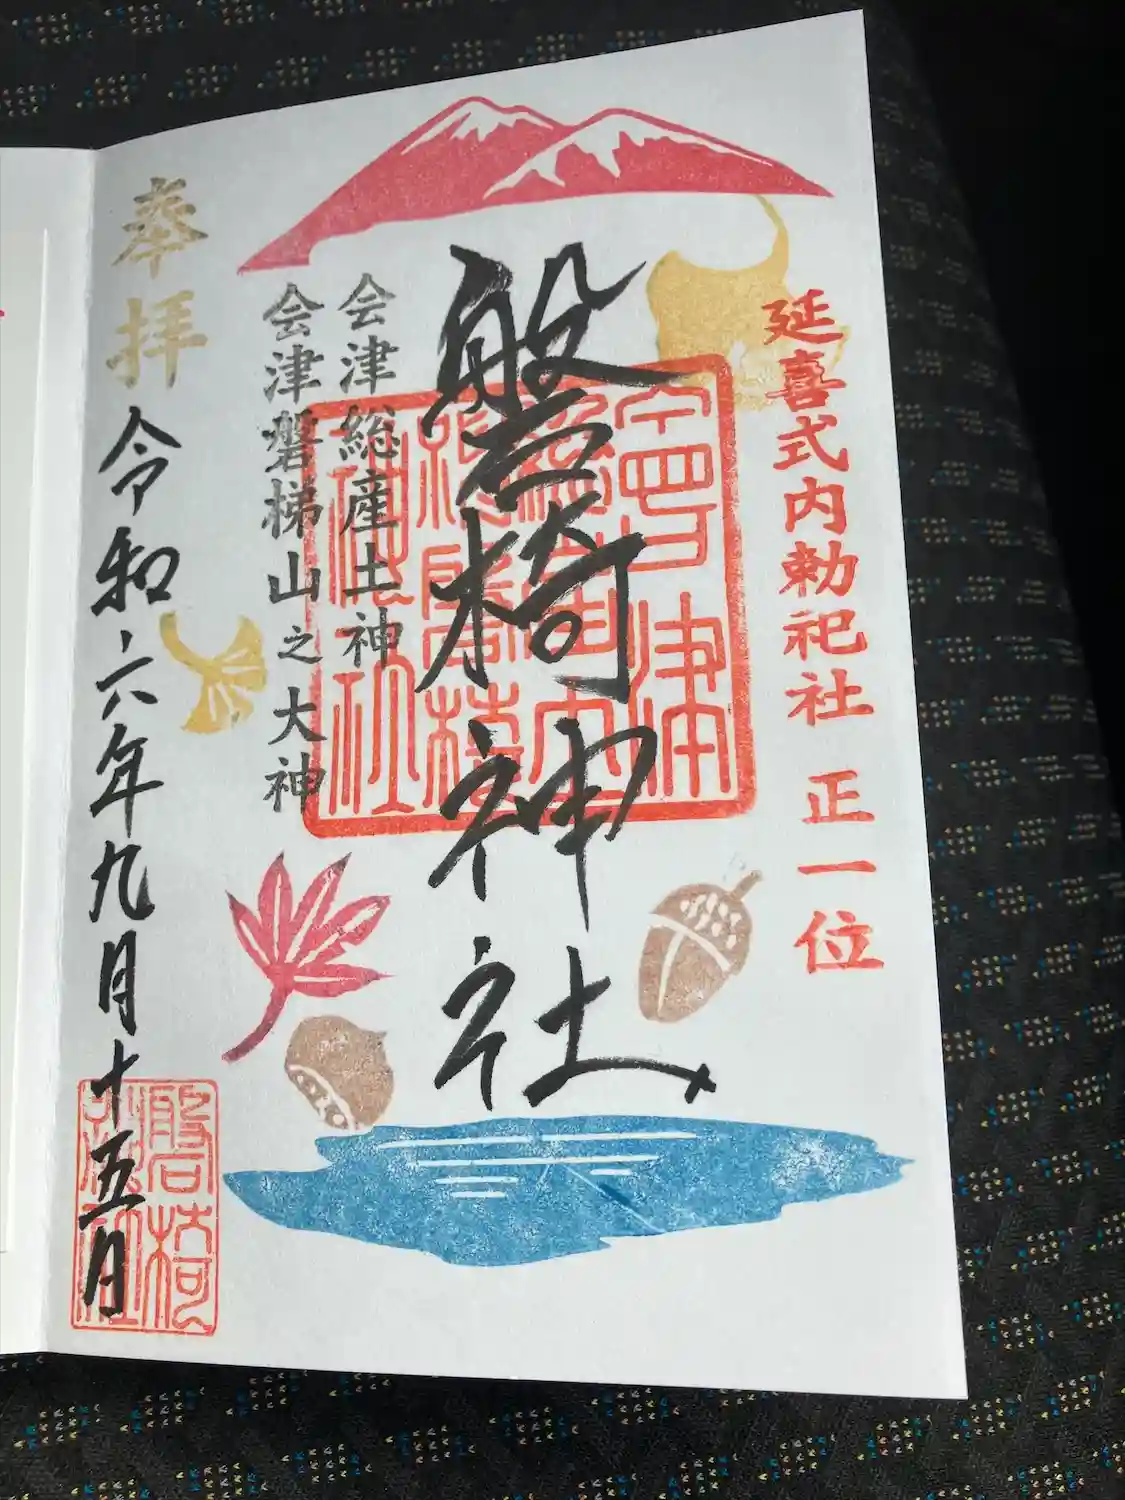 延喜式内勅祀社 正一位
磐椅神社
会津総産土神
会津磐梯山之大神
奉拝
令和六年九月十五日